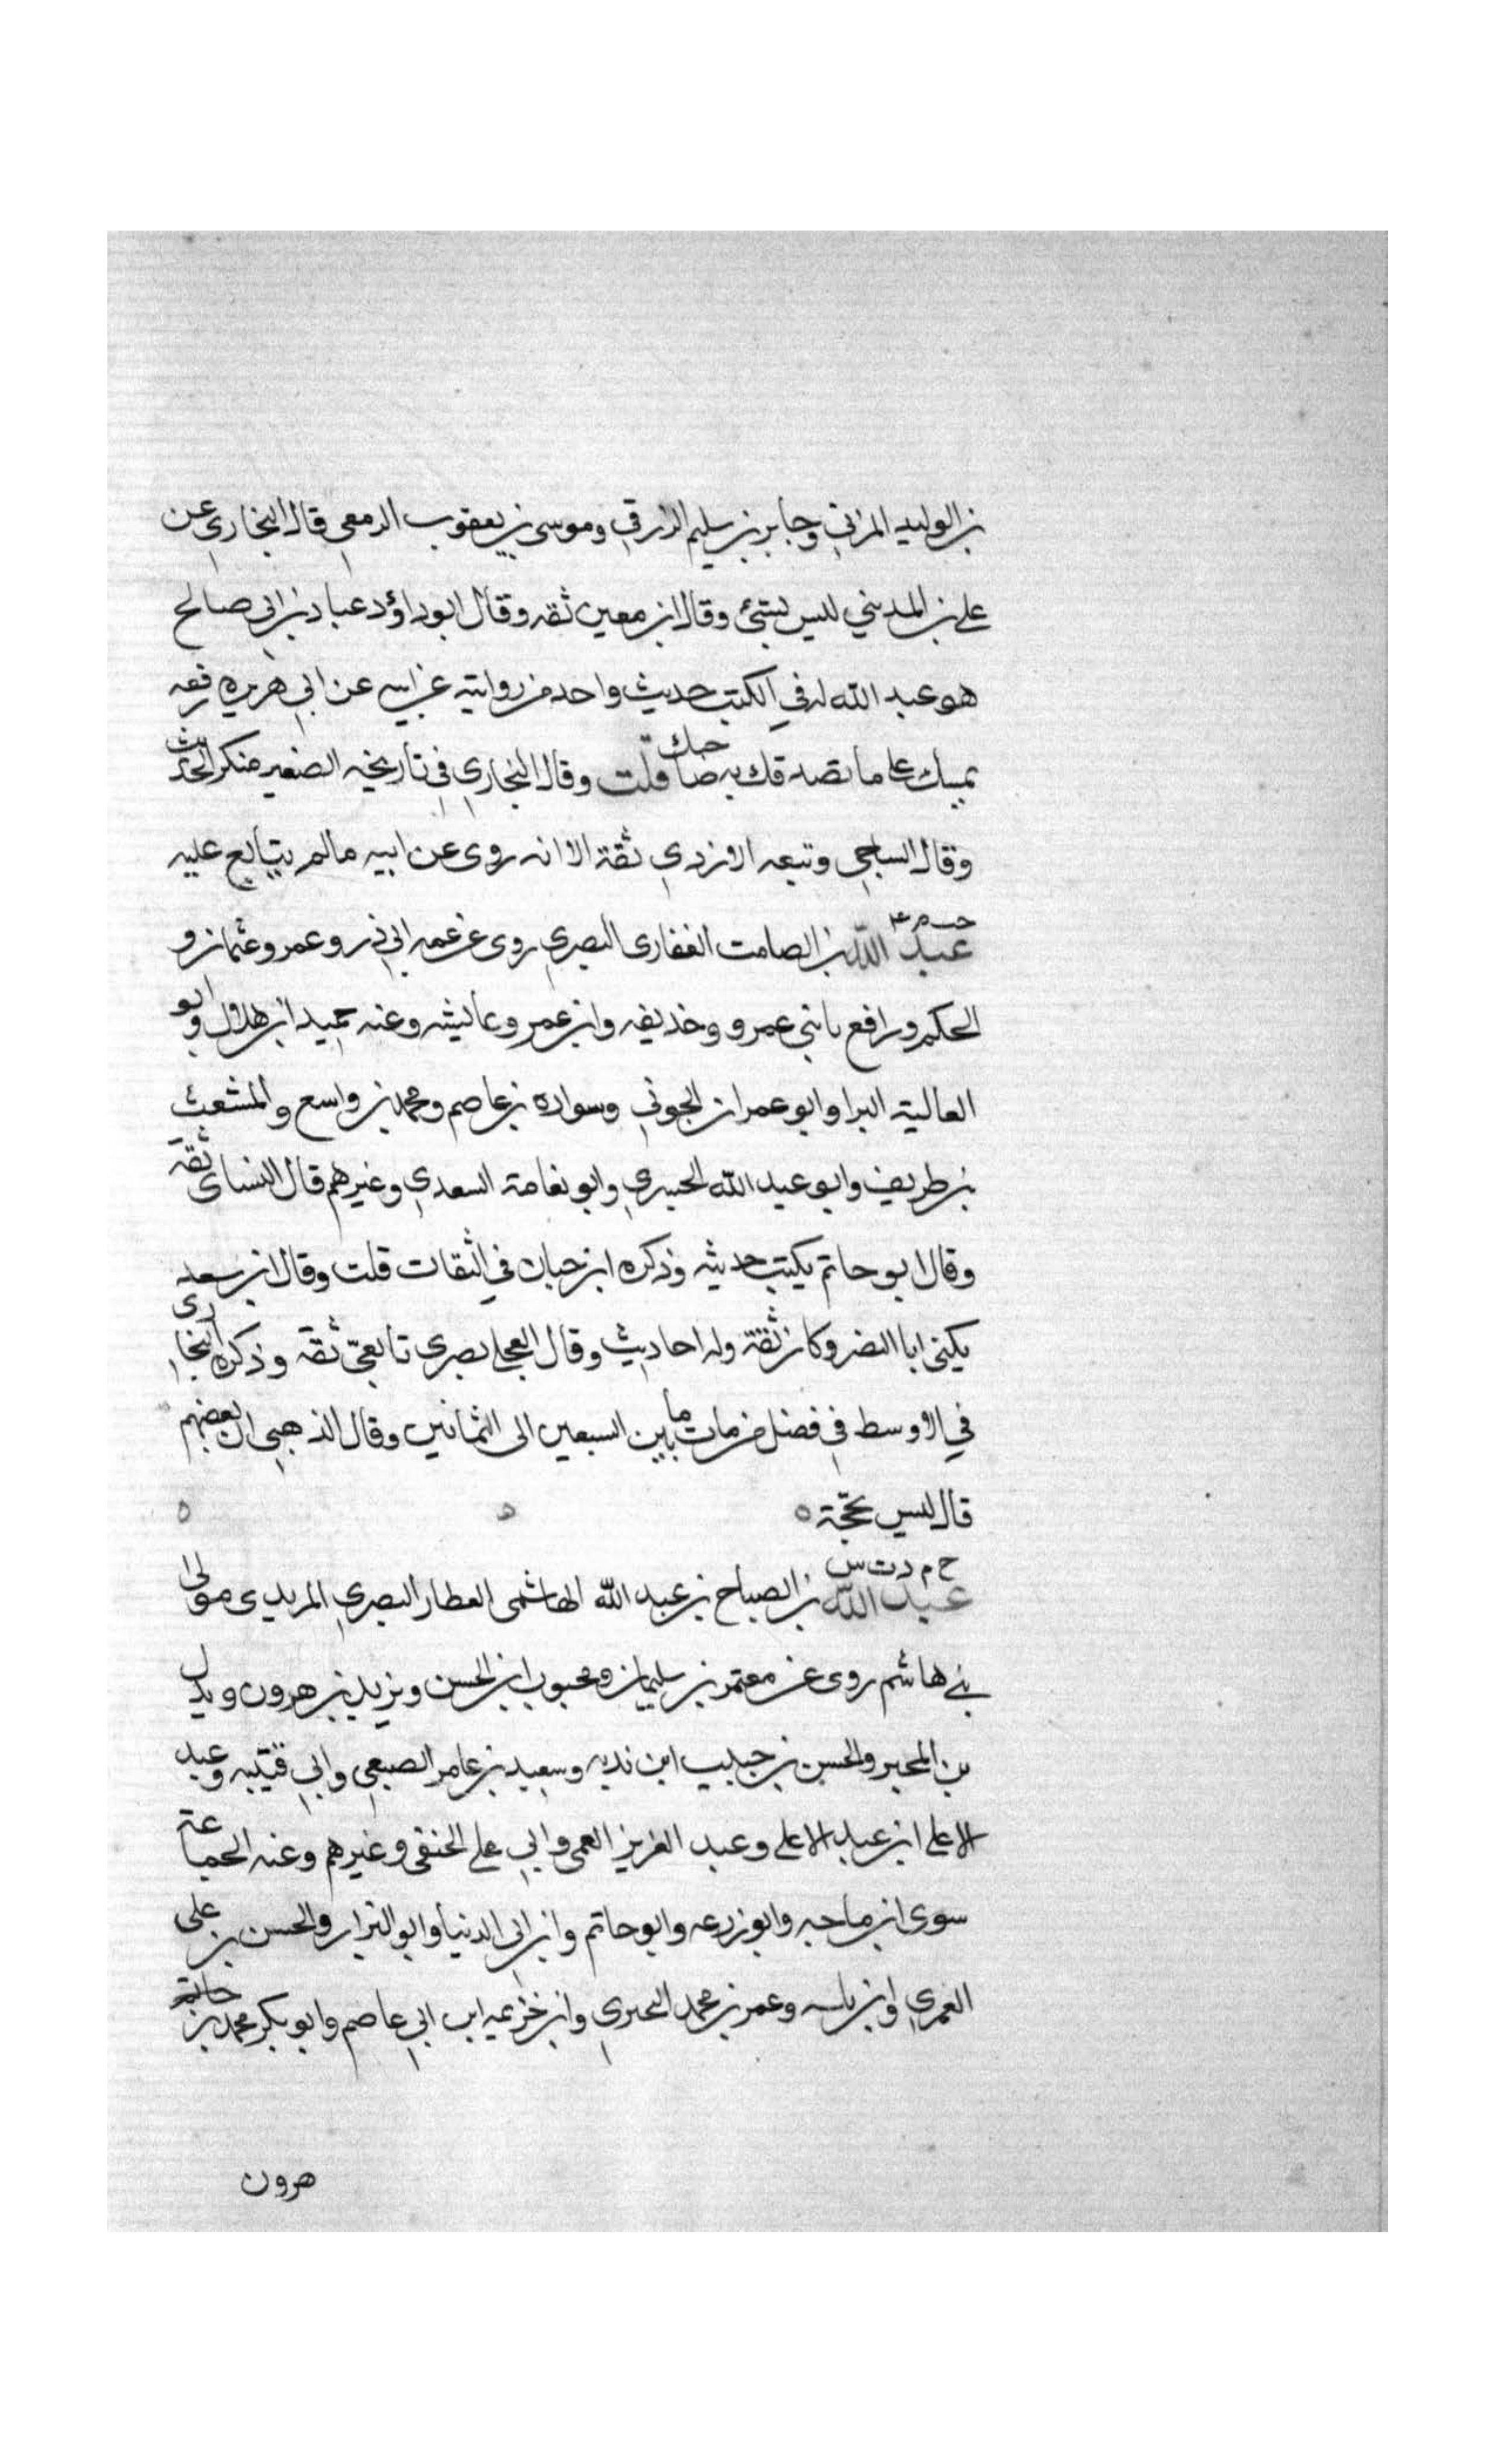 بن الوليد المزني وجابر بن سليم الزرقي وموسى بن يعقوب الزمعي قال البخاري عن
علي بن المديني ليس بشئ وقال ابن معين ثقه وقال ابو داؤد عباد بن ابي صالح
هو عبد الله له في الكتب حديث واحد من روايته عن ابيه عن ابي هريره رفعه
يمينك على ما يصدقك به صاحبك قلت وقال البخاري في تأريخه الصغير منكر الحديث
وقال الساجي وتبعه الازدي ثقة الا انه روى عن ابيه مالم يتابع عليه
عبد الله بن الصامت الغفارى البصري روى عن عمه ابي ذر وعمر وعثمان و
الحكم ورافع بابني عمرو وخذيفه وابن عمر وعايشه وعنه حميد ابن هلال وابو
العالية البرا وابو عمران الجوني وسواده بن عاصم ومحمد بن واسع والمشعث
بن طريف وابو عبد الله الجسري وابو نعامة السعدي وغيرهم قال النساى ثقة
وقال ابو حاتم يكتب حديثه وذكره ابن حبان في الثقات قلت وقال ابن سعد
يكنى ابا النضر وكان ثقة وله احاديث وقال العجلي بصري تابعي ثقة وذكره البخارى
في الاوسط في فضل من مات ما بين السبعين الى الثمانين وقال الذهبي ان بعضهم
قال ليس بحجة ه ه ه
خ م د ت س
عبد الله بن الصباح بن عبد الله الهاشمى العطار البصري المربدى مولى
بني هاشم روى عن معتمر بن سليمان ومحبوب ابن الحسن ويزيد بن هرون وبدل
بن المحبر والحسن بن حبيب ابن ندبه وسعيد بن عامر الضبعي وابي قتيبه وعبد
الاعلى ابن عبد الاعلى وعبد العزيز العمى وابي علي الحنفي وغيرهم وعنه الجماعة
سوى ابن ماجه وابو زرعه وابو حاتم وابن ابي الدنيا وابو البزار والحسن بن على
العمري وابن ياسه وعمر بن محمد البحيري وابن خزيمه ابن ابي عاصم وابو بكر محمد بن
هرون